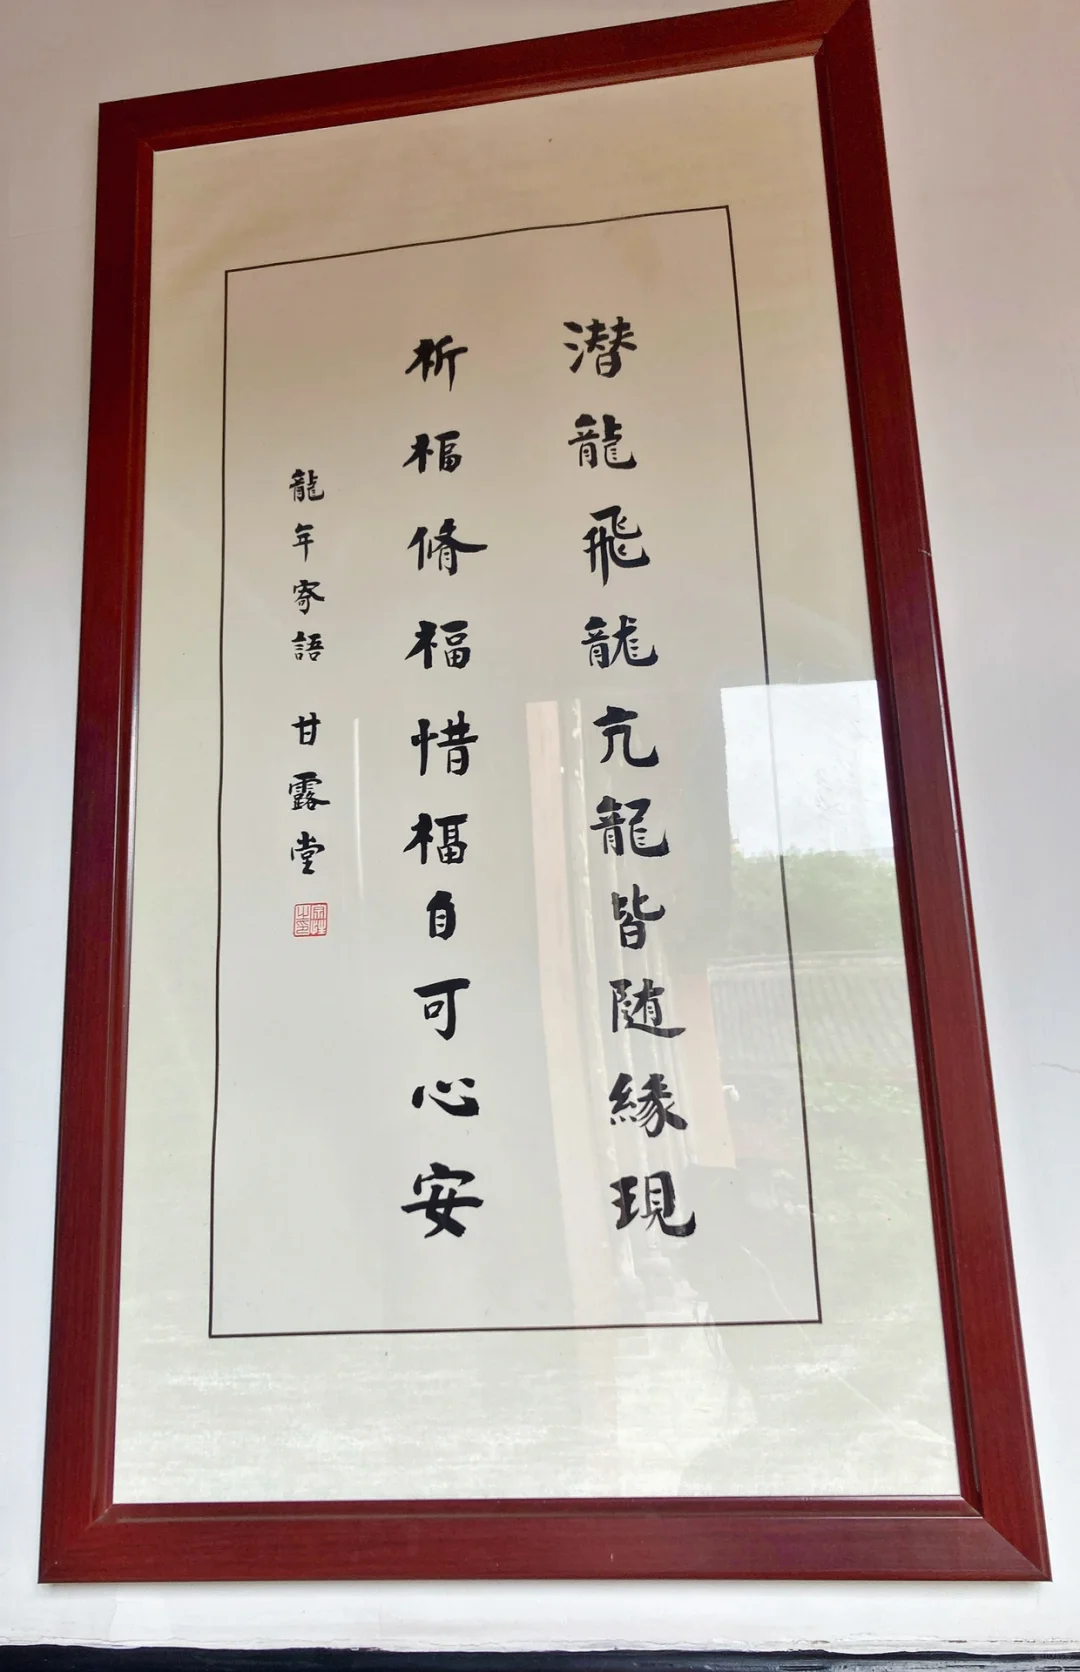 潜龍飛龍亢龍皆随緣現
祈福脩福惜福自可心安
龍年寄語 甘露堂